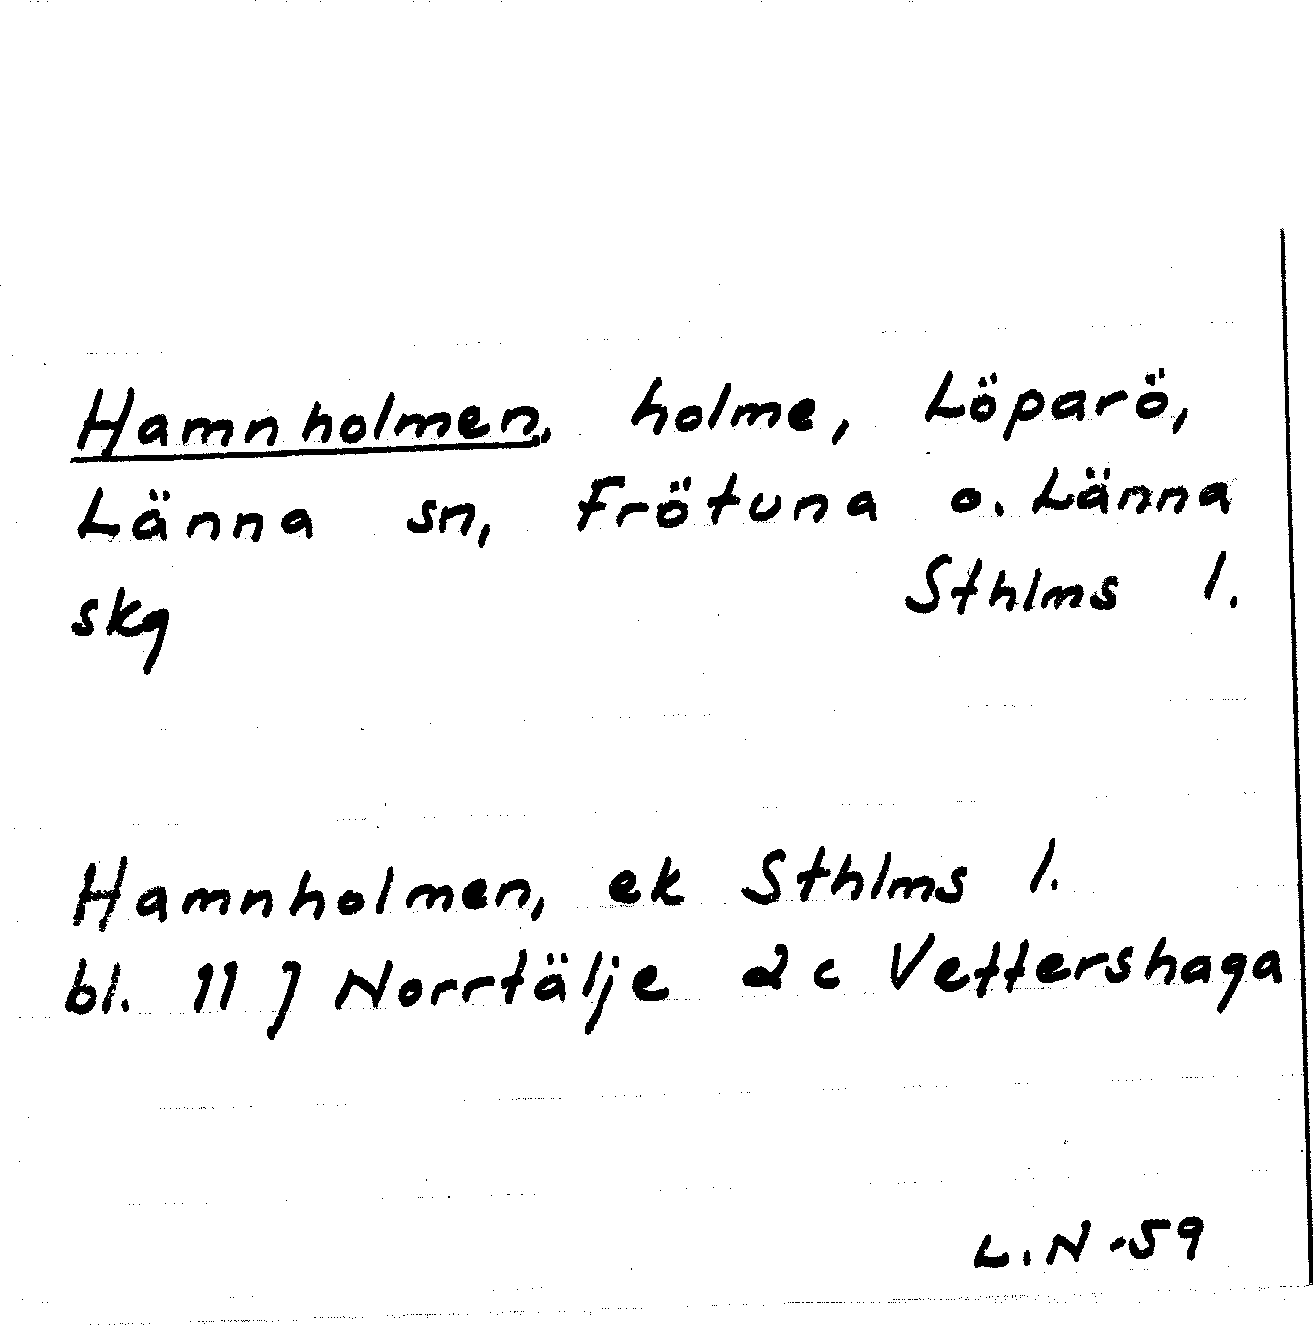 Hamnholmen, holme, Löparö,
Länna sn, Frötuna o. Länna
skg Sthlms l.
Hamnholmen, ek Sthlms l.
bl. 11 J Norrtälje 2 c Vettershaga
L.N -59